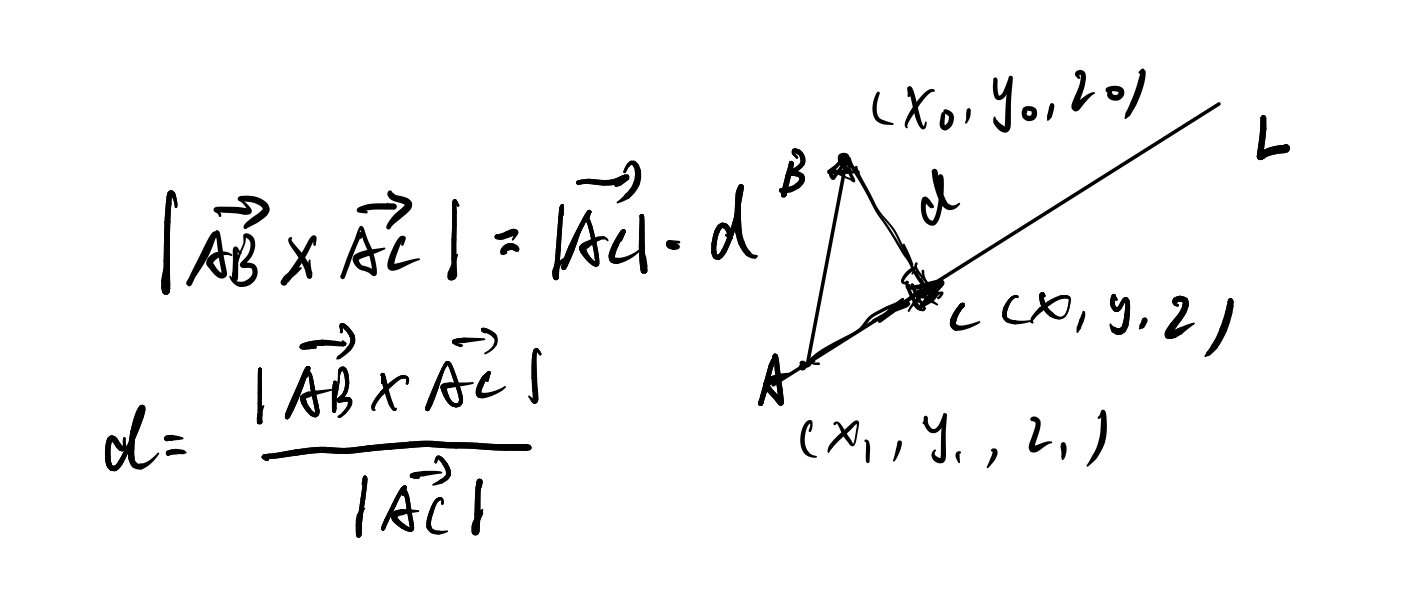 |AB⃗ × AC⃗| = |AC⃗| · d
d = |AB⃗ × AC⃗| / |AC⃗|
(x₀, y₀, z₀)
L
B
d
C (x, y, z)
A
(x₁, y₁, z₁)